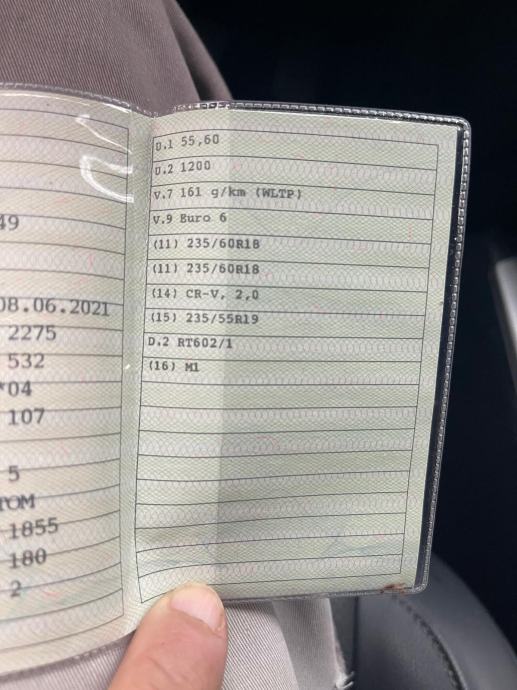 49
08.06.2021
2275
532
*04
107
5
TOM
1855
180
2
U.1 55,60
U.2 1200
V.7 161 g/km (WLTP)
V.9 Euro 6
(11) 235/60R18
(11) 235/60R18
(14) CR-V, 2,0
(15) 235/55R19
D.2 RT602/1
(16) M1